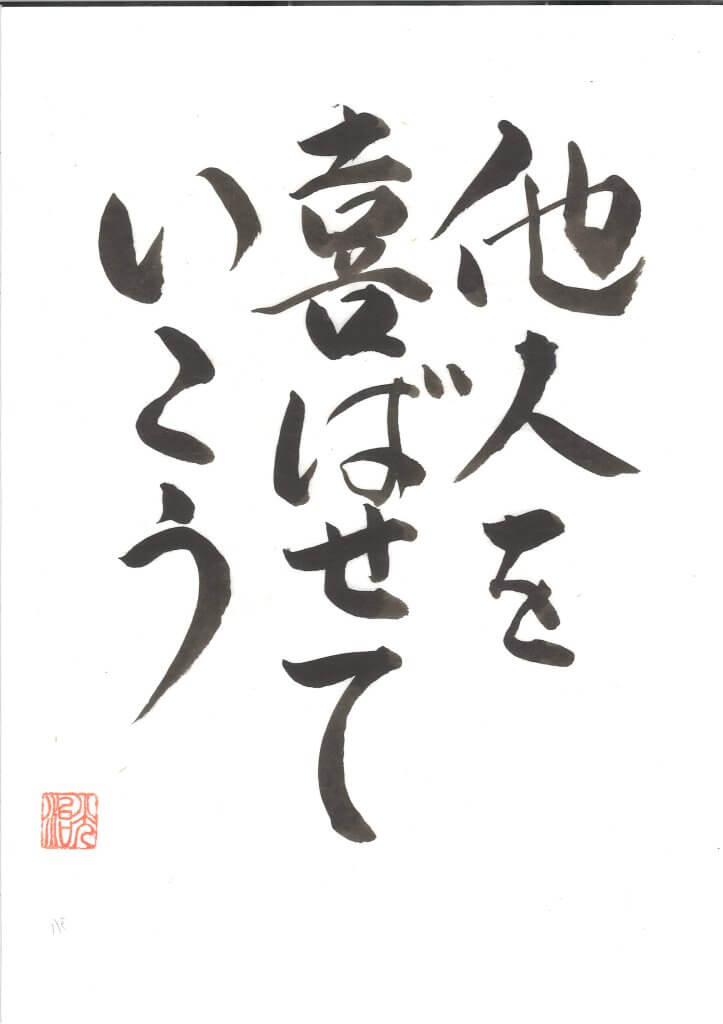 他人を
喜ばせて
いこう